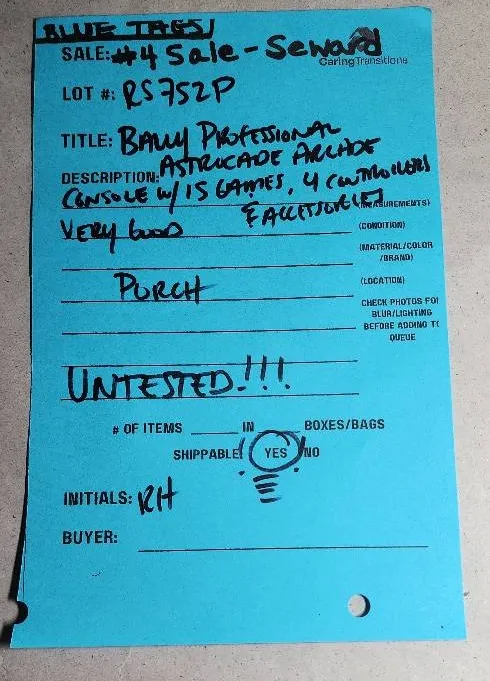 BLUE TAGS!
SALE: #4 Sale - Seward
CaringTransitions
LOT #: RS752P
TITLE: BALLY PROFESSIONAL
DESCRIPTION: ASTROCADE ARCADE
CONSOLE W/ 15 GAMES, 4 CONTROLLERS
& ACCESSORIES
(MEASUREMENTS)
VERY GOOD
(CONDITION)
(MATERIAL/COLOR
/BRAND)
PORCH
(LOCATION)
CHECK PHOTOS FOR
BLUR/LIGHTING
BEFORE ADDING TO
QUEUE
UNTESTED!!!
# OF ITEMS ____ IN ____ BOXES/BAGS
SHIPPABLE! YES NO
INITIALS: RH
BUYER: